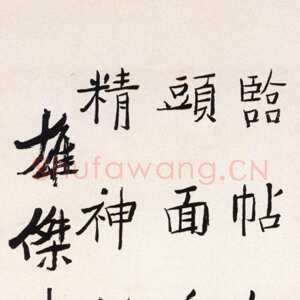 臨帖
頭面
精神
雄傑
Shufawang.CN